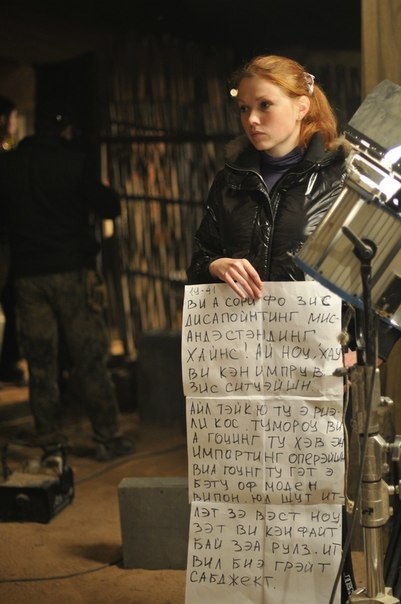 19-41
ВИ А СОРИ ФО ЗИС
ДИСАПОЙНТИНГ МИС-
АНДЭСТЭНДИНГ
ХАЙНС! АЙ НОУ. ХАУ
ВИ КЭН ИМПРУВ
ЗИС СИТУЭЙШН.
АЙЛ ТЭЙК Ю ТУ Э РИЭ-
ЛИ КОС ТУМОРОУ ВИ
А ГОИНГ ТУ ХЭВ ЭН
ИМПОРТИНГ ОПЕРЭЙШН
ВИ А ГОУНГ ТУ ГЭТ Э
БЭТУ ОФ МОДЕН
ВИПОН ЮЛ ШУТ ИТ-
ЛЭТ ЗЭ ВЭСТ НОУ
ЗЭТ ВИ КЭН ФАЙТ
БАЙ ЗЭА РУЛЗ. ИТ
ВИЛ БИ Э ГРЭЙТ
САБДЖЕКТ.